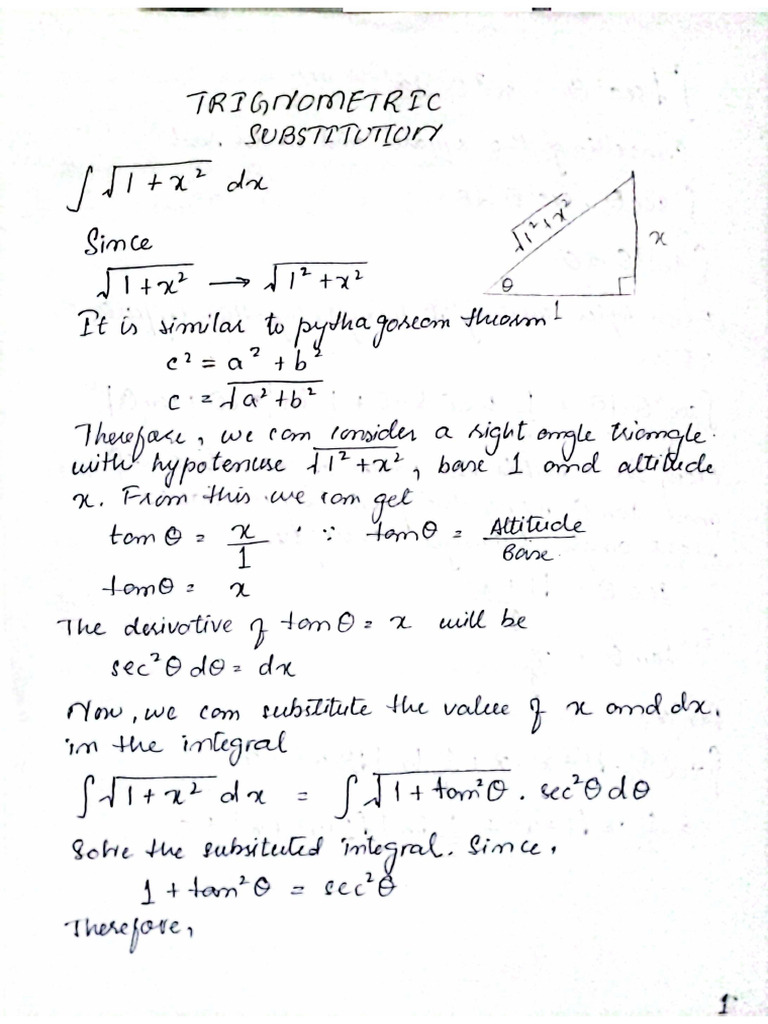 TRIGNOMETRIC
SUBSTITUTION
∫√1 + x² dx
√1²+x²
x
θ
1
Since
√1 + x² → √1² + x²
It is similar to pythagorean theorm
c² = a² + b²
c = √a² + b²
Therefore, we can consider a right angle triangle
with hypotenuse √1² + x², base 1 and altitude
x. From this we can get
tan θ = x/1 ∵ tan θ = Altitude/Base
tan θ = x
The derivative of tan θ = x will be
sec² θ dθ = dx
Now, we can substitute the value of x and dx.
in the integral
∫√1 + x² dx = ∫√1 + tan²θ . sec²θ dθ
Solve the subsituted integral. Since,
1 + tan² θ = sec² θ
Therefore,
1